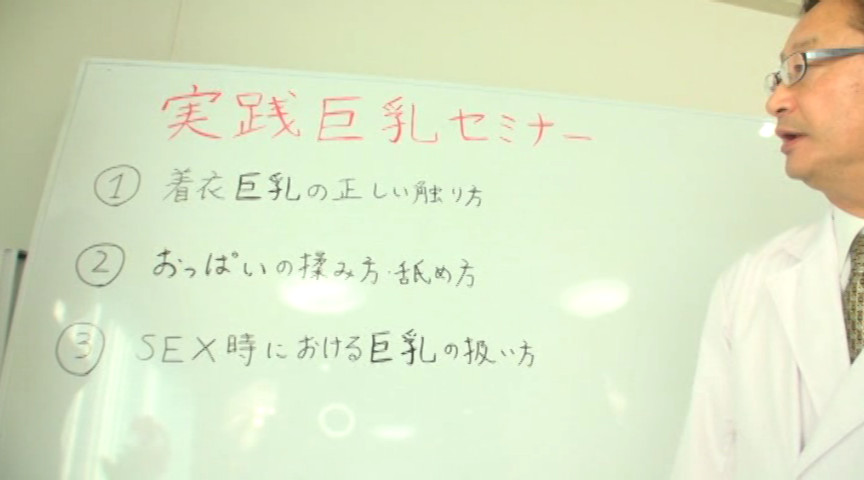 実践巨乳セミナー
① 着衣巨乳の正しい触り方
② おっぱいの揉み方・舐め方
③ SEX時における巨乳の扱い方